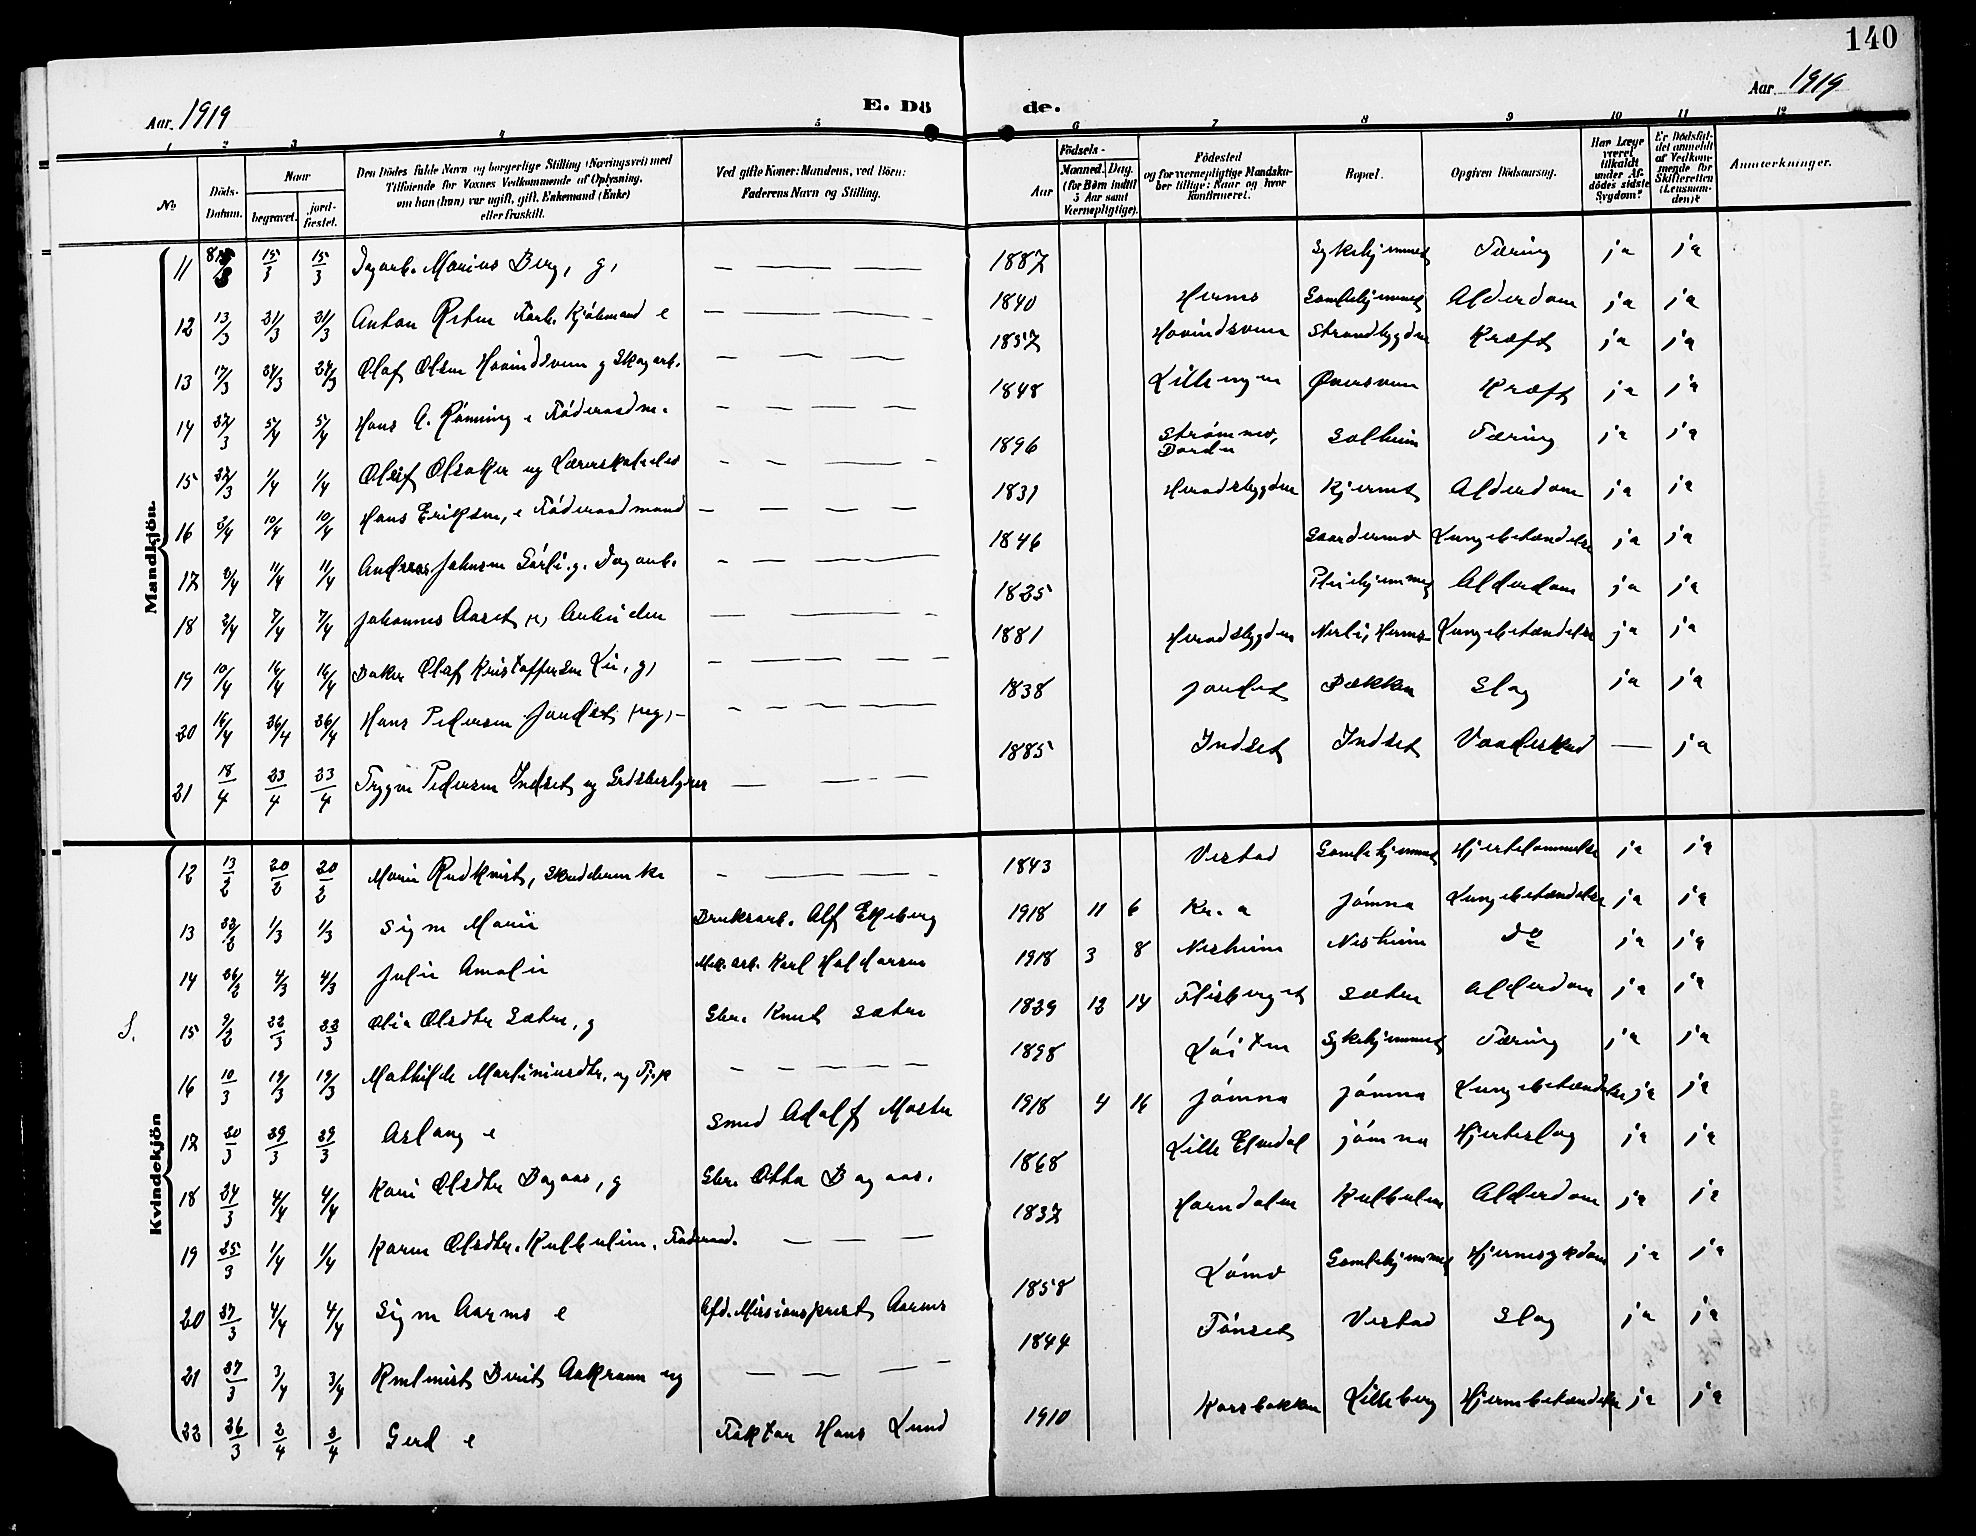 140
Aar. 1919
E. Dö de.
Aar. 1919
1 2 3 4 5 6 7 8 9 10 11 12
No.
Döds-Datum.
Naar
begravet.
jord-fæstet.
Den Dödes fulde Navn og borgerlige Stilling (Næringsvei) med
Tilföiende for Voxnes Vedkommende af Oplysning,
om han (hun) var ugift, gift, Enkemand (Enke)
eller fraskilt.
Ved gifte Koner: Mandens, ved Börn:
Faderens Navn og Stilling.
Födsels-
Aar
Maaned. Dag.
(for Börn indtil
5 Aar samt
Værnepligtige).
Födested
og for værnepligtige Mandska-
ber tillige: Naar og hvor
konfirmeret.
Bopæl.
Opgiven Dödsaarsag.
Har Læge
været
tilkaldt
under Af-
dödes sidste
Sygdom?
Er Dödsfal-
det anmeldt
af Vedkom-
mende for
Skifteretten
(Lensman-
den)?
Anmærkninger.
Mandkjön.
11 15/3 15/3 Dagarb. Marius Berg, g, — — — — 1887 Sykehjemmet Tæring ja ja
12 13/3 21/3 21/3 Anton Forh. Kjöbmand e — — — — 1840 Hernes Gamlehjemmet Alderdom ja ja
13 17/3 24/3 24/3 Olaf Olsen Hovindsveen g Skogarb. — — — — 1857 Hovindsveen Strandbygden Kræft ja ja
14 5/4 5/4 Hans A. Rønning e Föderaadm. — — — — 1848 Øversveen Kræft ja ja
15 1/4 1/4 Olaf Olsaker ug — — — — 1896 Strømmev, Solheim Tæring ja ja
16 10/4 10/4 Hans Eriksen, e Föderaadmand — — — — 1831 Heradsbygden Kjernet Alderdom ja ja
17 11/4 11/4 Andreas Johnsen Sörli. g. Dagarb. — — — — 1846 Lungebetændelse ja ja
18 7/4 7/4 Johannes Aaset, Arbeider — — — — 1825 Pleiehjemmet Alderdom ja ja
19 10/4 16/4 16/4 Baker Olaf Kristoffersen Lie, g, — — — — 1881 Heradsbygden Nerli, Hernes Lungebetændelse ja ja
20 16/4 26/4 26/4 Hans Pedersen Jordet, ug, — — — — — 1838 Jordet Bækken Slag ja ja
21 18/4 23/4 23/4 Trygve Pedersen Indset ug Gdsbestyrer — — — — 1885 Indset Indset Vaadeskud — ja
Kvindekjön
12 13/2 20/2 20/2 Marie Rudkvist, — — — — 1843 Vestad Gamlehjemmet Hjertelammelse ja ja
13 22/2 1/3 1/3 Signe Marie Bruksarb. Alf Ekeberg 1918 11 6 Kr.a Jömna Lungebetændelse ja ja
14 26/2 4/3 4/3 Julie Amalie Mek. arb. Karl Haldorsen 1918 3 8 Nesheim Nesheim do ja ja
S.
15 22/3 22/3 Olia Olsdtr Sæter, g Gbr. Knut Sæter 1829 12 14 Flisberget Sæter Alderdom ja ja
16 10/3 19/3 19/3 Mathilde Martiniusdtr. ug Tj.p — — — — 1898 Löiten Sykehjemmet Tæring ja ja
17 20/3 29/3 29/3 Aslaug e Smed Adolf Moster 1918 4 16 Jömna Jömna Lungebetændelse ja ja
18 24/3 4/4 4/4 Kari Olsdtr Bagaas, g Gbr. Otto Bagaas. 1868 Lille Elvedal Jömna Hjerteslag ja ja
19 25/3 1/4 1/4 Karen Olsdtr. Kulbulien. Föderaad. — — — 1837 Horndalen Kulbulien Alderdom ja ja
20 27/3 4/4 4/4 Signe Aarnes e Afd. Missionsprest Aarnes 1858 Gamlehjemmet Hjernesykdom ja ja
21 27/3 3/4 3/4 Berit Aakrann ug — — — — 1844 Tönset Vestad Slag ja ja
22 26/3 2/4 2/4 Gerd e Faktor Hans Lund 1910 Korsbakken Lilleberg Hjernebetændelse ja ja